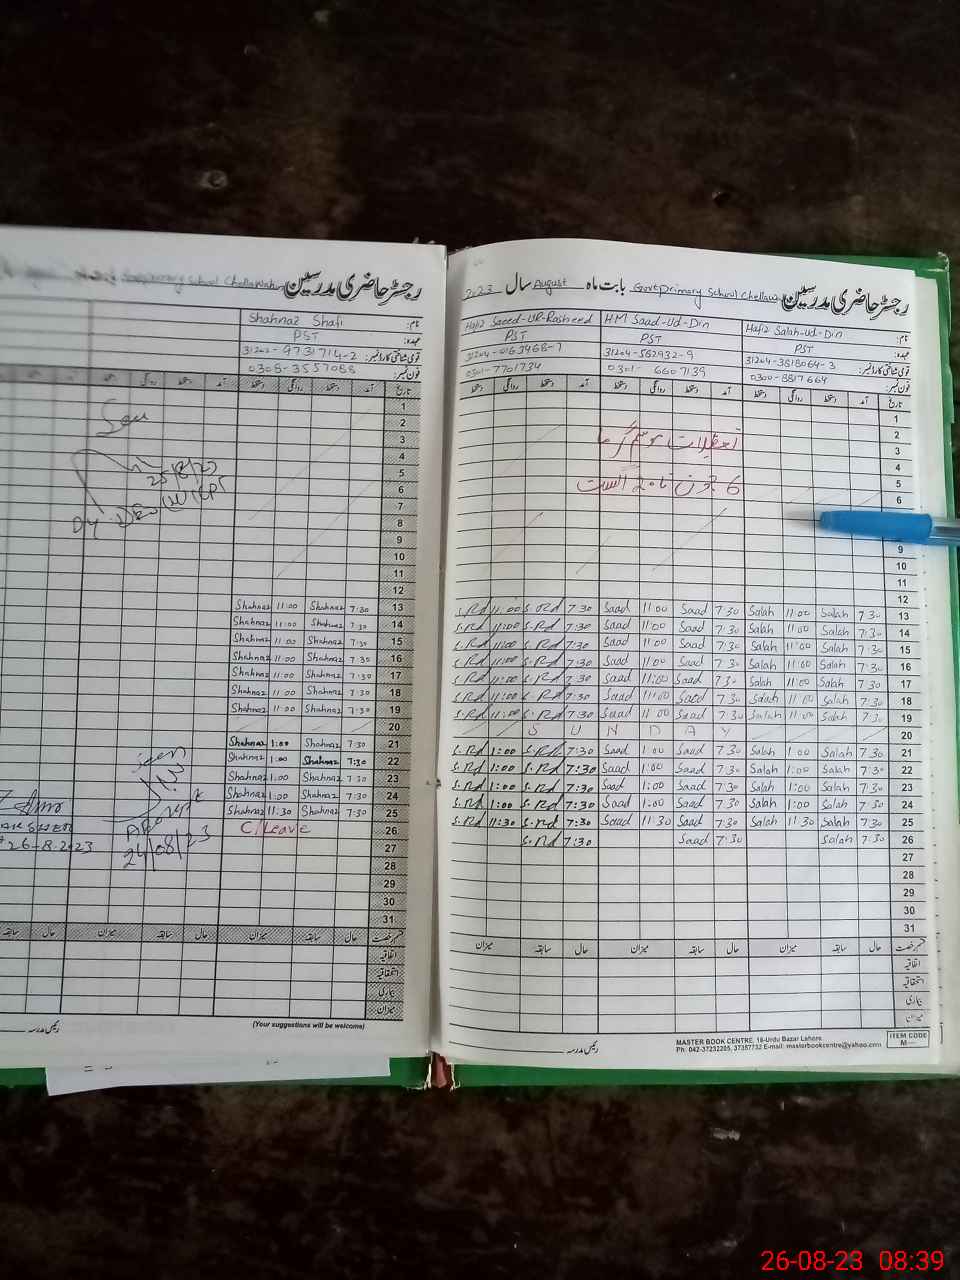 رجسٹر حاضری مدرسین Govt primary School Chellawahan
Shahnaz Shafi نام:
PST عہدہ:
31202-9731714-2 قومی شناختی کارڈ نمبر:
0308-3557088 فون نمبر:
تاریخ آمد دستخط روانگی دستخط
1
2
3
4
5
6
7
8
9
10
11
12
Shahnaz 11:00 Shahnaz 7:30 13
Shahnaz 11:00 Shahnaz 7:30 14
Shahnaz 11:00 Shahnaz 7:30 15
Shahnaz 11:00 Shahnaz 7:30 16
Shahnaz 11:00 Shahnaz 7:30 17
Shahnaz 11:00 Shahnaz 7:30 18
Shahnaz 11:00 Shahnaz 7:30 19
20
Shahnaz 1:00 Shahnaz 7:30 21
Shahnaz 1:00 Shahnaz 7:30 22
Shahnaz 1:00 Shahnaz 7:30 23
Shahnaz 1:00 Shahnaz 7:30 24
Shahnaz 11:30 Shahnaz 7:30 25
C/Leave 26
27
28
29
30
31
Seen
25/8/23
Seen
24/08/23
26-8-2023
حال سابقہ میزان حال سابقہ
اتفاقیہ
استحقاقیہ
بیماری
میزان
رئیس مدرسہ
(Your suggestions will be welcome)
رجسٹر حاضری مدرسین Govt primary School Chellawahan بابت ماہ August سال 2023
Hafiz Saeed-UR-Rasheed HM Saad-Ud-Din Hafiz Salah-Ud-Din نام:
PST PST PST عہدہ:
31204-0163468-7 31204-582932-9 31204-3818064-3 قومی شناختی کارڈ نمبر:
0301-7701734 0301-6607139 0300-8817664 فون نمبر:
تاریخ آمد دستخط روانگی دستخط آمد دستخط روانگی دستخط آمد دستخط روانگی دستخط
1
2
تعطیلات موسم گرما
3
4
5
6 جون تا 20 اگست
6
9
10
11
12
S.Rd 11:00 S.Rd 7:30 Saad 11:00 Saad 7:30 Salah 11:00 Salah 7:30 13
S.Rd 11:00 S.Rd 7:30 Saad 11:00 Saad 7:30 Salah 11:00 Salah 7:30 14
S.Rd 11:00 S.Rd 7:30 Saad 11:00 Saad 7:30 Salah 11:00 Salah 7:30 15
S.Rd 11:00 S.Rd 7:30 Saad 11:00 Saad 7:30 Salah 11:00 Salah 7:30 16
S.Rd 11:00 S.Rd 7:30 Saad 11:00 Saad 7:30 Salah 11:00 Salah 7:30 17
S.Rd 11:00 S.Rd 7:30 Saad 11:00 Saad 7:30 Salah 11:00 Salah 7:30 18
S.Rd 11:00 S.Rd 7:30 Saad 11:00 Saad 7:30 Salah 11:00 Salah 7:30 19
S U N D A Y 20
S.Rd 1:00 S.Rd 7:30 Saad 1:00 Saad 7:30 Salah 1:00 Salah 7:30 21
S.Rd 1:00 S.Rd 7:30 Saad 1:00 Saad 7:30 Salah 1:00 Salah 7:30 22
S.Rd 1:00 S.Rd 7:30 Saad 1:00 Saad 7:30 Salah 1:00 Salah 7:30 23
S.Rd 1:00 S.Rd 7:30 Saad 1:00 Saad 7:30 Salah 1:00 Salah 7:30 24
S.Rd 11:30 S.Rd 7:30 Saad 11:30 Saad 7:30 Salah 11:30 Salah 7:30 25
S.Rd 7:30 Saad 7:30 Salah 7:30 26
27
28
29
30
31
قسم رخصت حال سابقہ میزان حال سابقہ میزان حال سابقہ میزان
اتفاقیہ
استحقاقیہ
بیماری
میزان
رئیس مدرسہ
MASTER BOOK CENTRE, 16-Urdu Bazar Lahore.
Ph: 042-37232205, 37357732 E-mail: masterbookcentre@yahoo.com
ITEM CODE
26-08-23 08:39